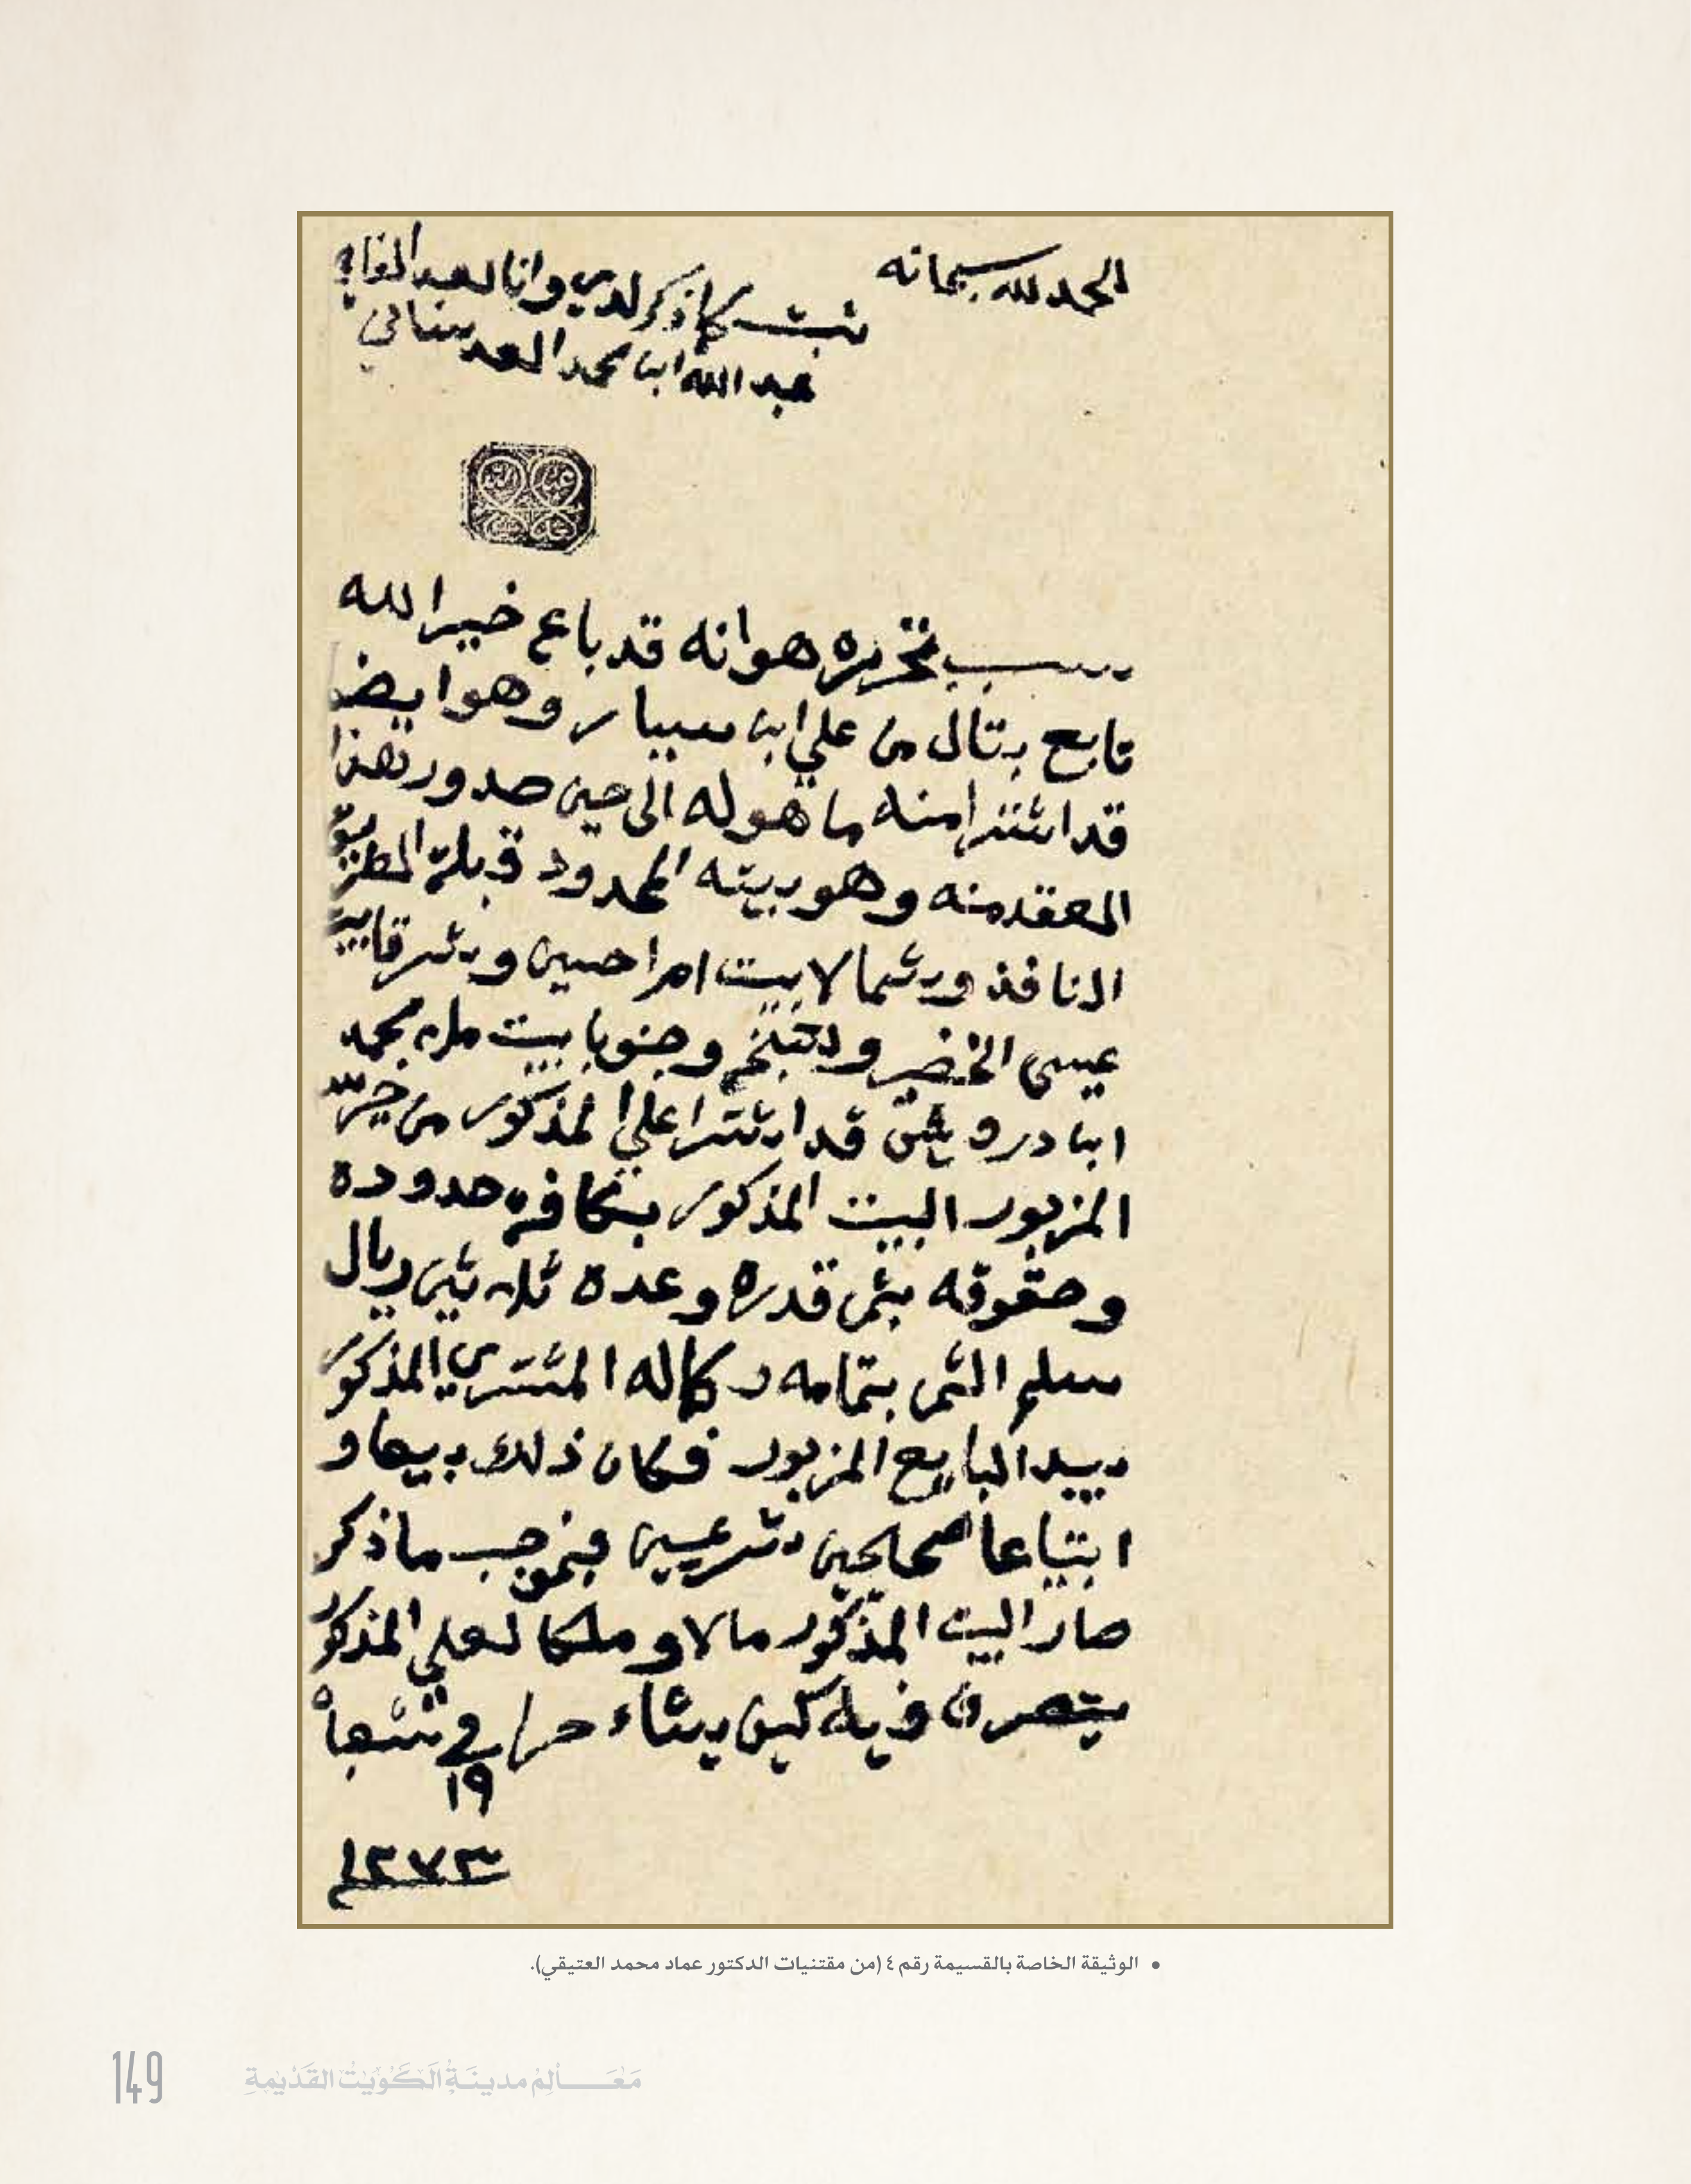 الحمد لله سبحانه
ثبت كما ذكر لدي وانا العبد الفاني
عبد الله ابن محمد العدساني
سبب تحريره هو انه قد باع خير الله
تابع بتال من علي ابن سيار وهو ايضا
قد اشترا منه ما هو له الى حين صدور هذا
العقد منه وهو بيته المحدود قبلة الطريق
النافذ وشمالا بيت امراحسين وشرقا بيت
عيسى الخضر و وجنوبا بيت ملا محمد
ابن درويش قد اشترا علي المذكور من خير الله
المزبور البيت المذكور بكافة حدوده
وحقوقه بثمن قدره وعدده ثلاثين ريال
سلم الثمن بتمامه وكماله المشتري المذكور
بيد البايع المزبور فكان ذلك بيعا و
ابتياعا صحيحين شرعيين فبموجب ما ذكر
صار البيت المذكور مالا وملكا لعلي المذكور
يتصرف فيه كيف يشاء حرر في شعبان
١٩
١٢٧٣
• الوثيقة الخاصة بالقسيمة رقم ٤ (من مقتنيات الدكتور عماد محمد العتيقي).
149 معالم مدينة الكويت القديمة